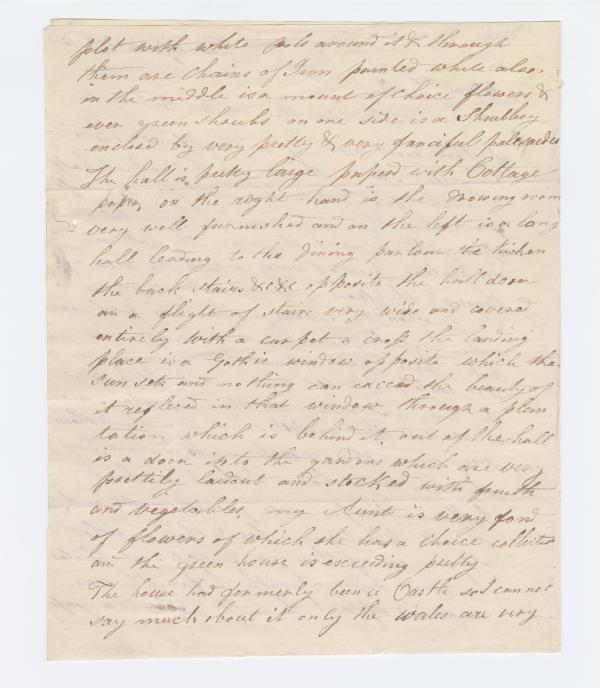 plot with white pols around it & through
them are Chains of Iron painted white also,
in the middle is a mount of choice flowers &
ever green shrubs on one side is a Shrubbery
enclosed by very pretty & very fanciful palisades
The hall is pretty large paperd with Cottage
paper, on the right hand is the drowing room
very well furnished and on the left is a long
hall leading to the dining parlour the kichen
the back stairs &c &c opposite the hall door
are a flight of stairs very wide and covered
entirely with a carpet a cross the landing
place is a Gothic window opposite which the
sun sets and nothing can exceed the beauty of
it refleced in that window through a plan
tation which is behind it. out of the hall
is a door into the gardens which are very
prettily laidout and stocked with fruith
and vegetables, my Aunt is very fond
of flowers of which she has a choice collection
and the green house is exceeding pretty
The house had formerly been a Castle so I can not
say much about it only the wales are very